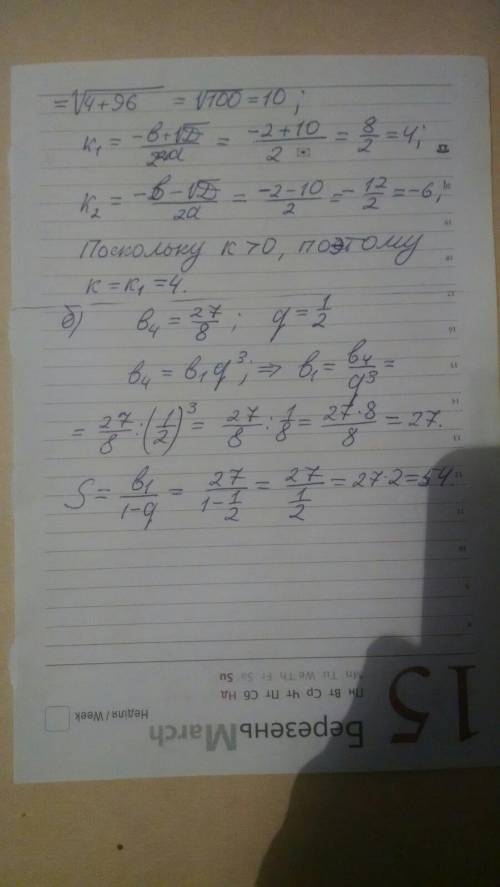 = √4+96 = √100 = 10 ;
к₁ = -в+√D/2a = -2+10/2 = 8/2 = 4;
к₂ = -в-√D/2a = -2-10/2 = -12/2 = -6;
Поскольку к > 0, поэтому
к = к₁ = 4.
б) в₄ = 27/8 ; q = 1/2
в₄ = в₁q³; ⇒ в₁ = в₄/q³ =
= 27/8 : (1/2)³ = 27/8 : 1/8 = 27·8/8 = 27.
S = в₁/1-q = 27/1-1/2 = 27/1/2 = 27·2 = 54.
15
Березень March
Неділя / Week
Пн Вт Ср Чт Пт Сб Нд
Mn Tu We Th Fr Sa Su